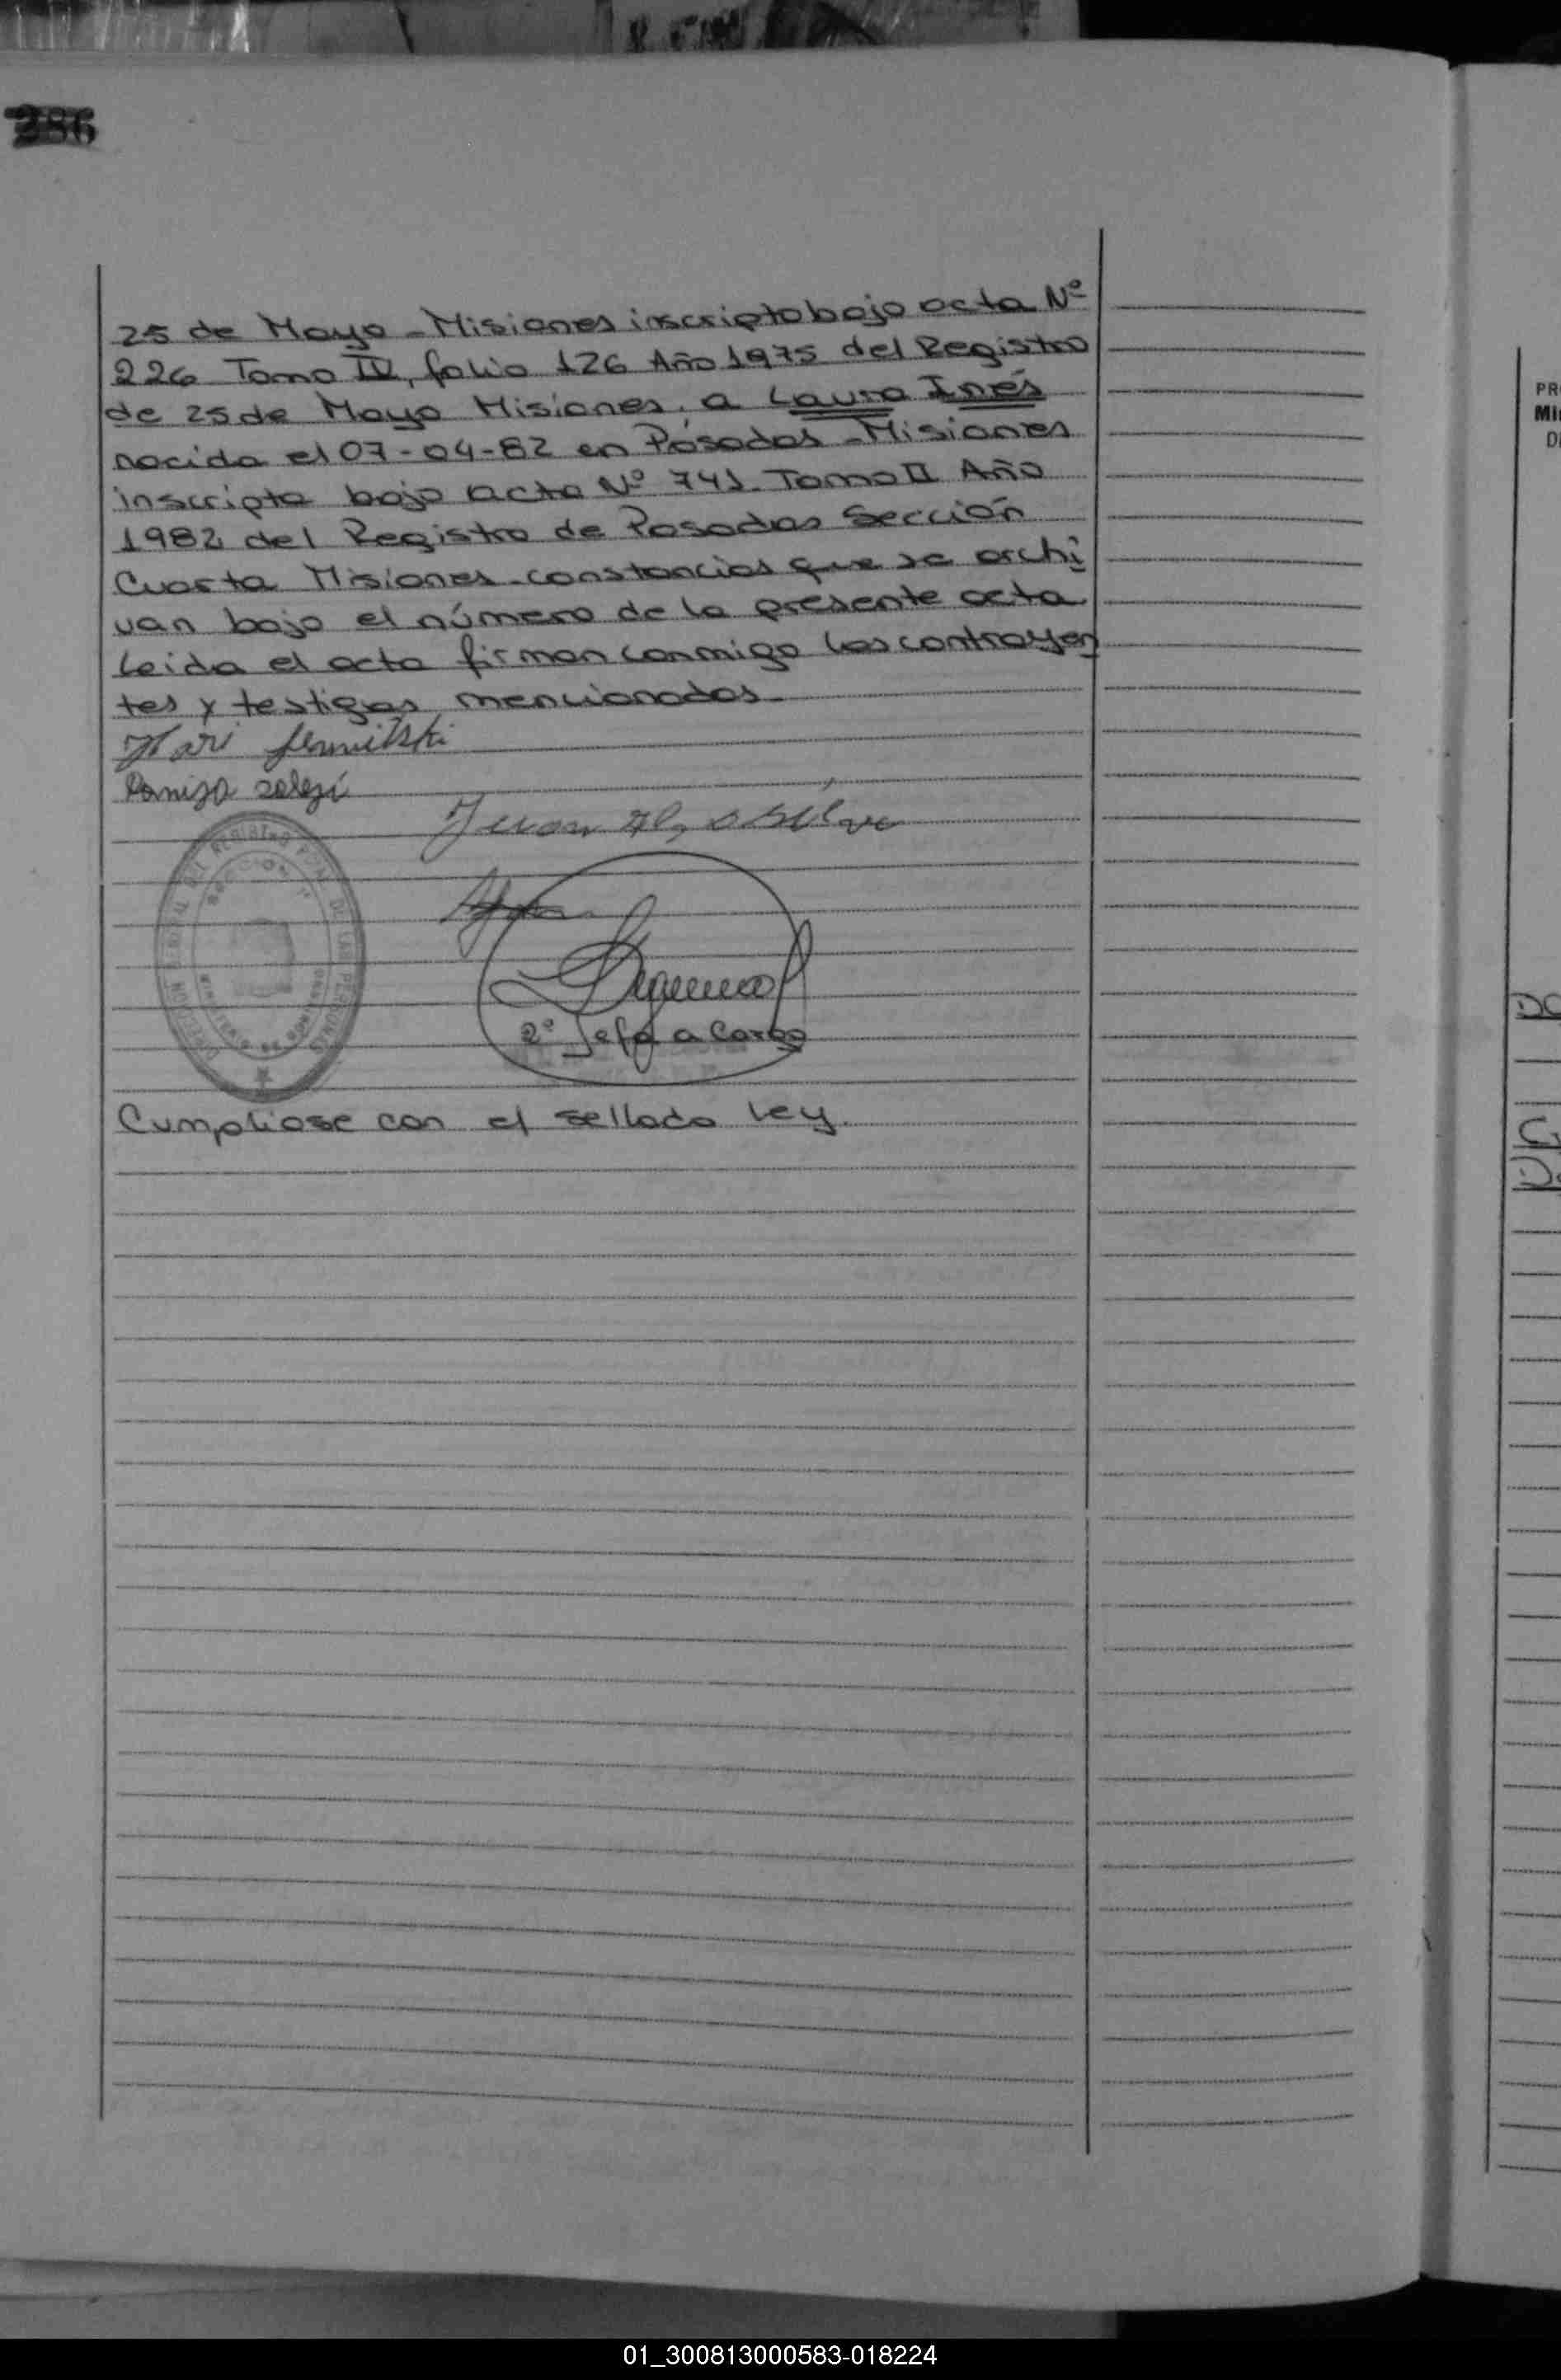 286
25 de Mayo - Misiones inscripto bajo acta Nº
226 Tomo IV, folio 126 Año 1975 del Registro
de 25 de Mayo Misiones, a Laura Inés
nacida el 07-04-82 en Posadas - Misiones
inscripta bajo acta Nº 741 - Tomo II Año
1982 del Registro de Posadas Sección
Cuarta Misiones - constancias que se archi
van bajo el número de la presente acta
leida el acta firman conmigo los contrayen
tes y testigos mencionados -
2º Jefa a Cargo
Cumpliose con el sellado ley.
PR
MI
D
01_300813000583-018224